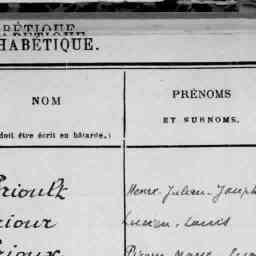 HABÉTIQUE.
NOM
PRÉNOMS
ET SURNOMS.
doit être écrit en bâtarde.)
rioult Henri-Julien-Joseph
riour Lucien-Louis
rioux Pierre Marie